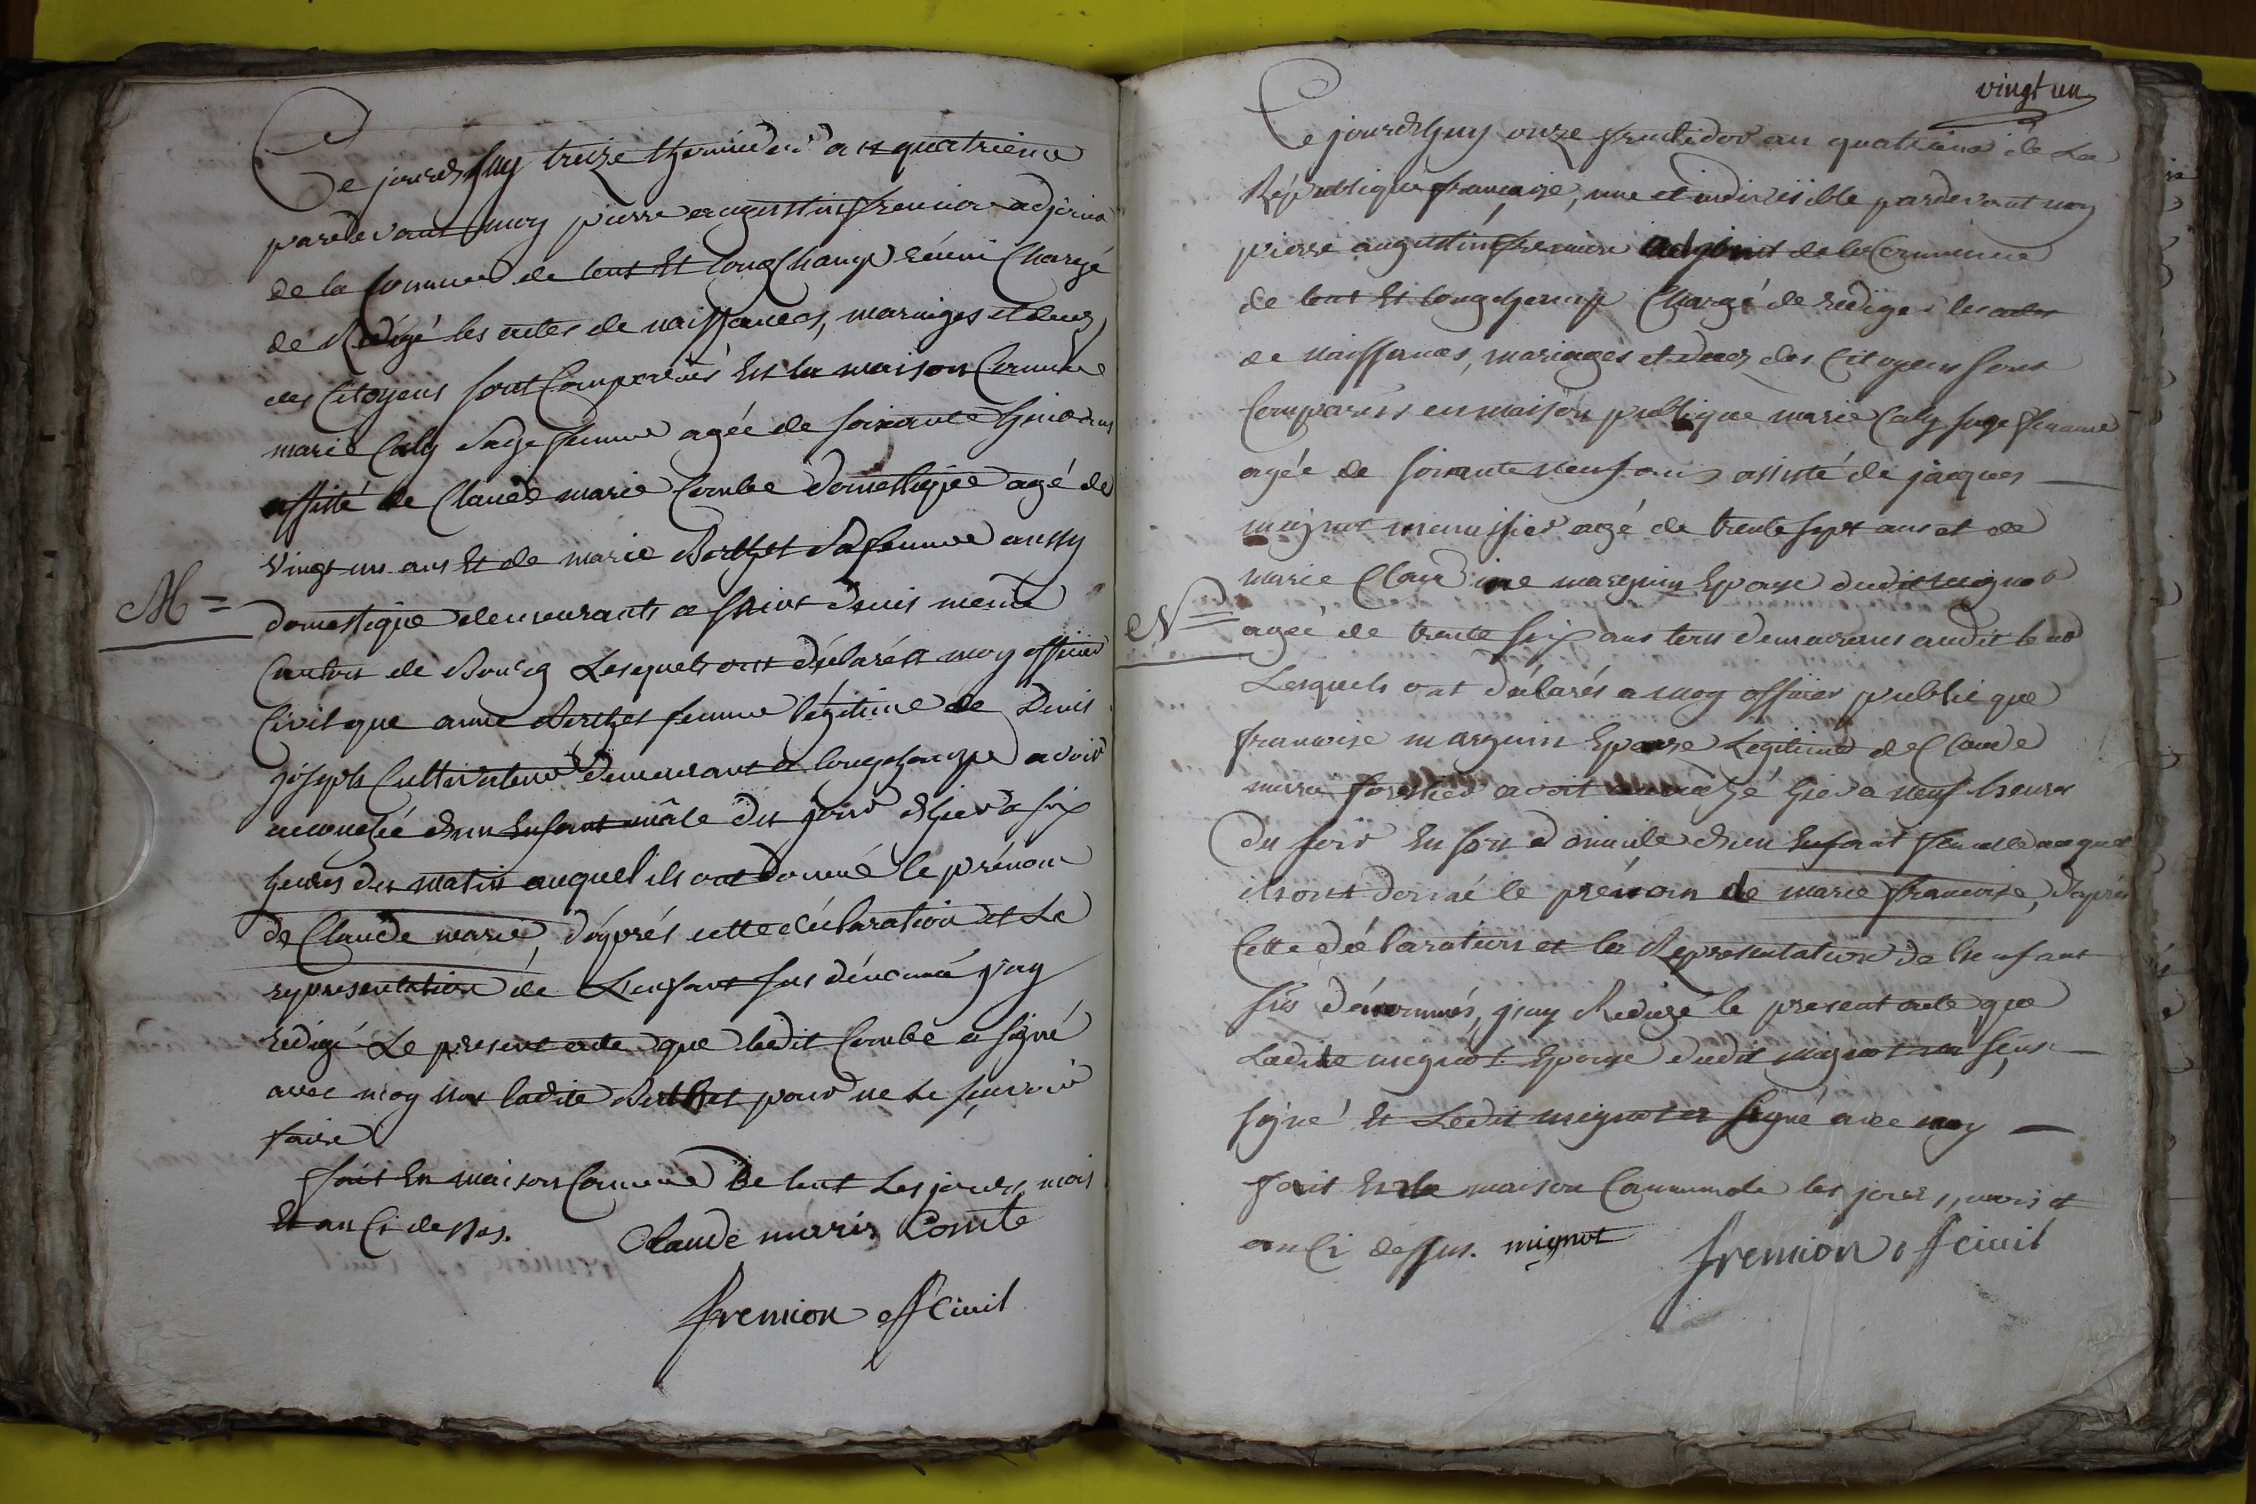 Ce jourdhuy treize thermidor an quatrieme
pardevant moy pierre augustin fremion adjoint
de la Commune de lent Et longChamp réüni Chargé
de Rédigé les actes de naissances, mariages et deces
des Citoyens sont Comparüs En la maison Commune
marie Caly Sage femme agée de soixante huit ans
assisté de Claude marie Combe domestique agé de
vingt un ans Et de marie Berthet Sa femme aussy
M = domestique demeurants a saint denis meme
Canton de Bourg Lesquels ont déclarés a moy officier
Civil que anne Berthet femme légitime de Denis
joseph Cultivateur demeurant a longchamp avoir
accouchée dun Enfant mâle du jour dhier a six
heures du matin auquel ils ont donné le prénom
de Claude marie, d'aprés cette déclaration et La
representation de Lenfant sus dénommé j'ay
redigé Le present acte que ledit Combe a signé
avec moy non ladite Berthet pour ne Le sçavoir
faire
fait En maison Commune De lent Les jours, mois
Et an Ci dessus. Claude marie Comte
fremion off civil
vingt un
Ce jourdhuy onze fructidor an quatrieme de La
République française, une et indivisible pardevant moy
pierre augustin fremion adjoint de la Commune
de lent Et longchamp Chargé de rediger les actes
de naissances, mariages et deces des Citoyens sont
Comparüs en maison publique marie Caly sage femme
agée de soixante neuf ans assisté de jacques
mignot menuisier agé de trente sept ans et de
marie Claudine marguin Epouse dudit mignot
N = agée de trente six ans tous demeurans audit lent
Lesquels ont déclarés a moy officier public que
francoise marguin Epouse Legitime de Claude
marie forestier avoit accouché hier a neuf heures
du soir En son domicile dun Enfant femelle auquel
ils ont donné le prénom de marie francoise, d'aprés
Cette déclaration et la Representation de lenfant
sus dénommés, j'ay Redigé le present acte que
Ladite mignot Epouse dudit mignot na sçus
signé Et Ledit mignot a signé avec moy
fait En la maison Commune les jours, mois et
an Ci dessus. mignot fremion off civil